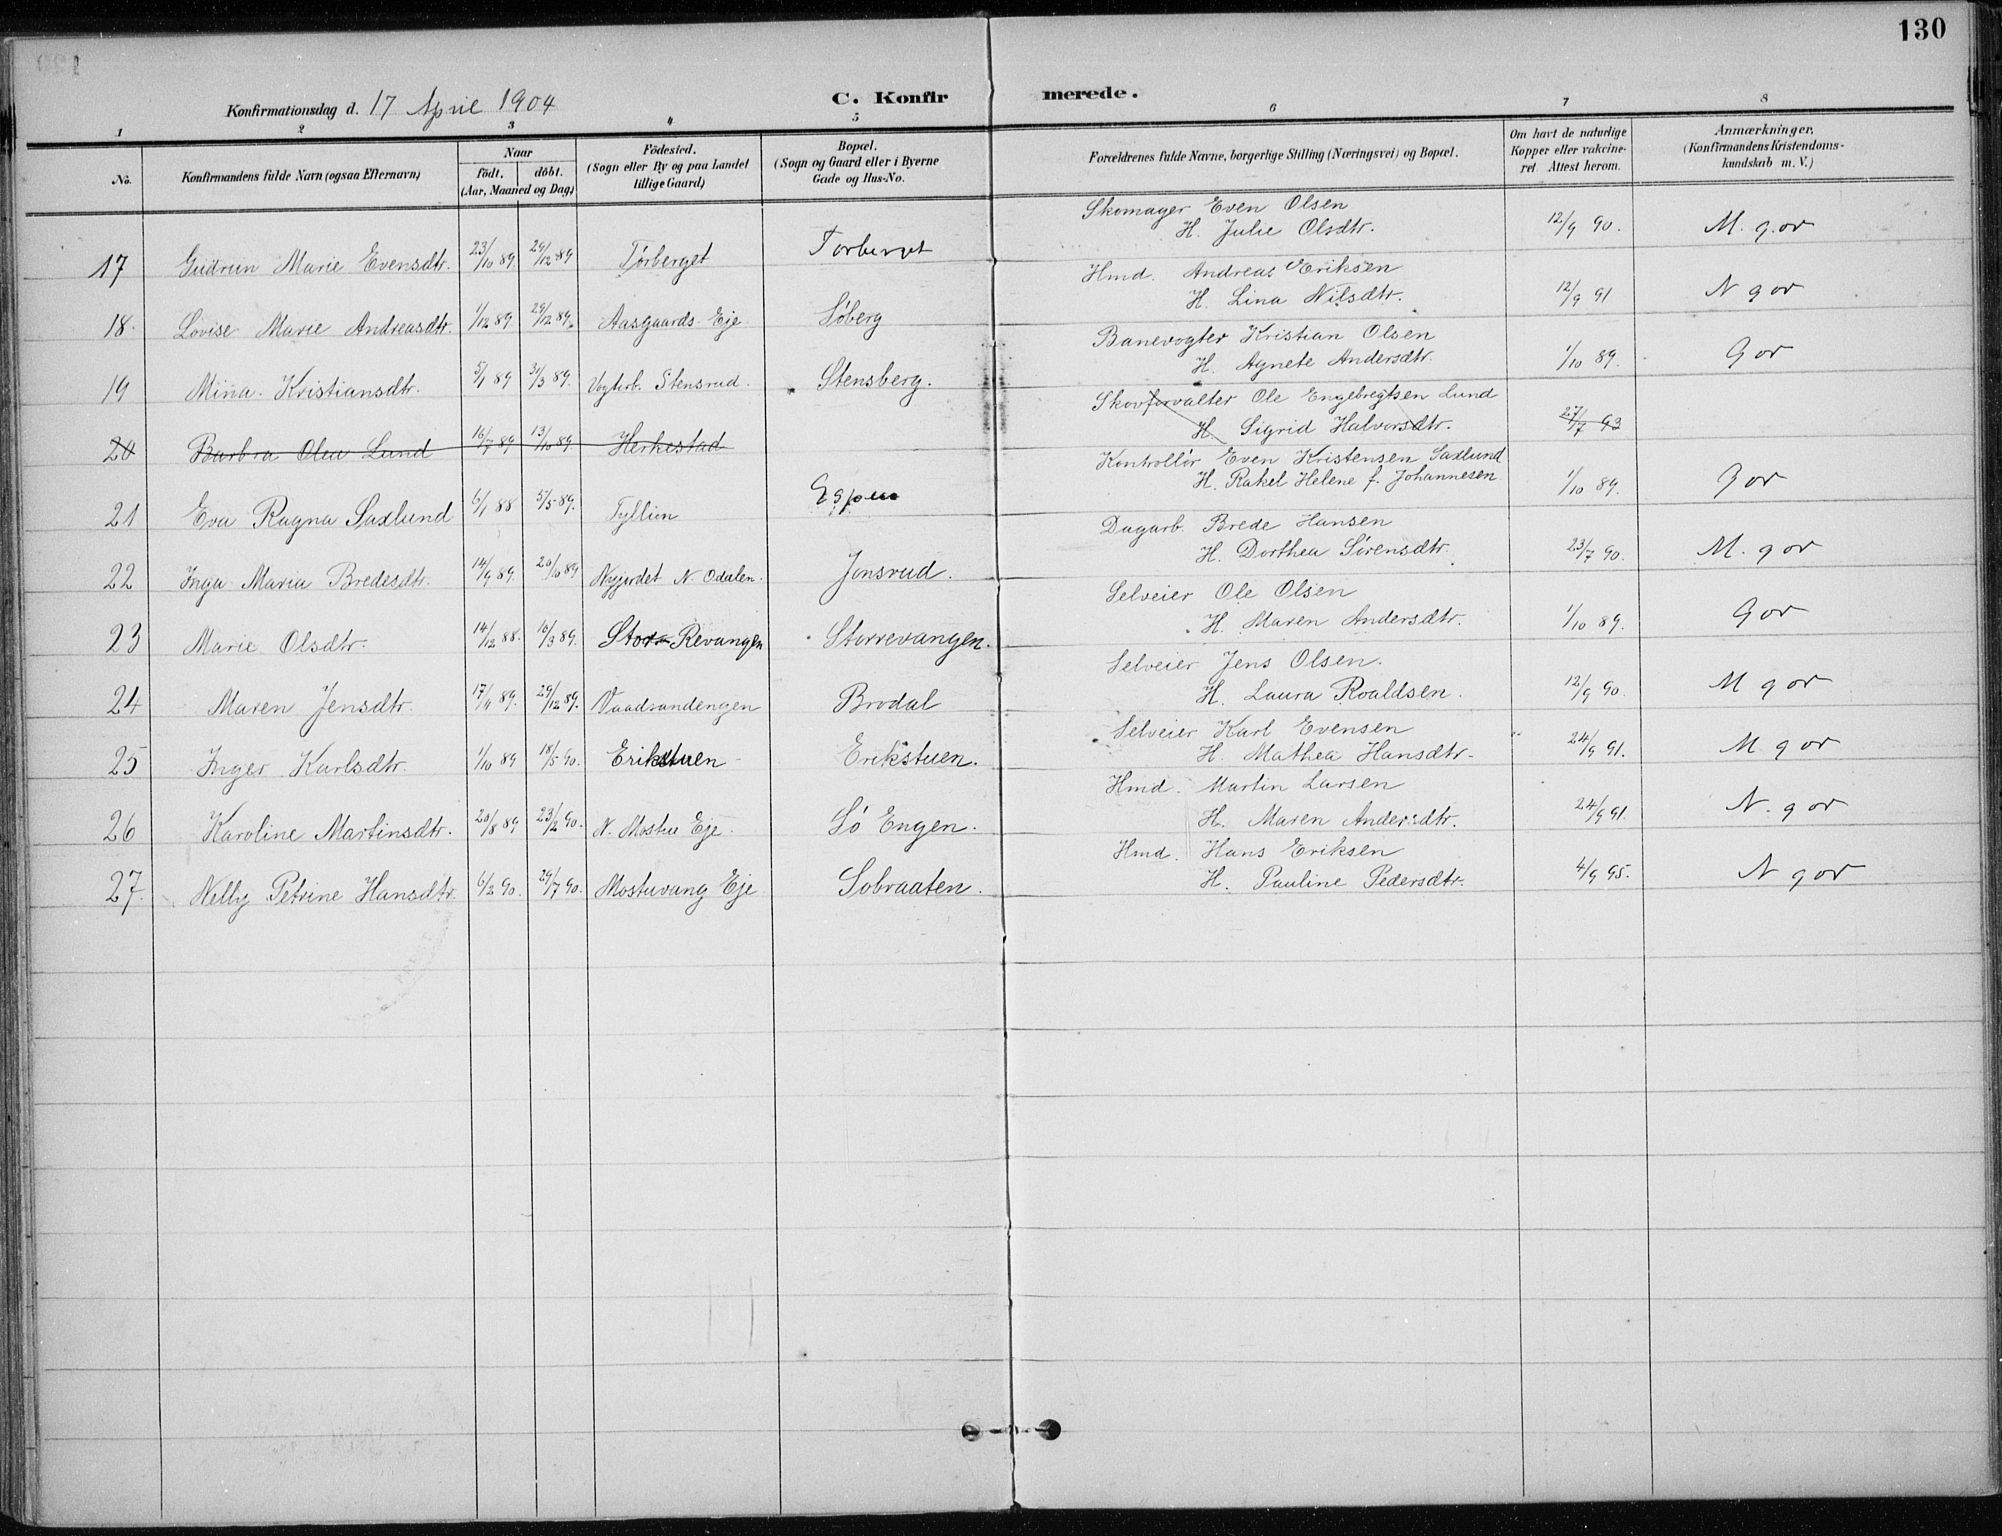 130
Konfirmationsdag d. 17 April 1904
C. Konfirmerede.
1 2 3 4 5 6 7 8
No. Konfirmandens fulde Navn (ogsaa Efternavn) Naar födt. döbt. (Aar, Maaned og Dag) Födested. (Sogn eller By og paa Landet tillige Gaard) Bopæl. (Sogn og Gaard eller i Byerne Gade og Hus-No. Forældrenes fulde Navne, borgerlige Stilling (Næringsvei) og Bopæl. Om havt de naturlige Kopper eller vakcineret. Attest herom. Anmærkninger. (Konfirmandens Kristendomskundskab m. V.)
17 Gudrun Marie Evensdtr. 23/10 89. 29/12 89 Tørberget Torberget Skomager Even Olsen H. Julie Olsdtr. 12/9 90. M. g. or
18. Lovise Marie Andreasdtr. 1/12 89. 29/12 89. Aasgaards Eje Søberg Hmd. Andreas Eriksen H. Lina Nilsdtr. 12/9 91 N g or
19 Mina Kristiansdtr. 5/1 89 31/3 89. Vogterb. Stensrud. Stensberg. Banevogter Kristian Olsen H. Agnete Andersdtr. 1/10 89. G or
20 Barbra Olea Lund 16/7 89 13/10 89. Herkestad Skovforvalter Ole Engebregtsen Lund H. Sigrid Halvorsdtr. 27/7 93
21 Eva Ragna Saxlund 6/1 88 5/5 89. Tyllien Espen Kontrollør Even Kristensen Saxlund H. Rakel Helene f. Johannesen 1/10 89. G or
22 Inga Maria Bredesdtr. 14/9 89. 20/10 89 Nyjordet N. Odalen. Jonsrud. Dagarb. Brede Hansen H. Dorthea Sørensdtr. 23/7 90. M. g or
23 Marie Olsdtr. 14/12 88. 16/3 89. Stor-Revangen Storrevangen. Selveier Ole Olsen H. Maren Andersdtr. 1/10 89. G or
24 Maren Jensdtr. 17/11 89. 29/12 89. Vaadsandengen Brodal Selveier Jens Olsen. H. Laura Roaldsen. 12/9 90. M g or
25 Inger Karlsdtr. 1/10 89 18/5 90. Erikstuen Erikstuen. Selveier Karl Evensen H. Mathea Hansdtr. 24/9 91. M g or
26 Karoline Martinsdtr. 20/8 89 23/2 90. N. Mostue Eje. Sø Engen. Hmd. Martin Larsen H. Maren Andersdtr. 24/9 91. N. g or
27. Nelly Petrine Hansdtr. 6/2 90. 29/7 90. Mostuvang Eje Sobraaten. Hmd. Hans Eriksen H. Pauline Pedersdtr. 4/9 95. N g or